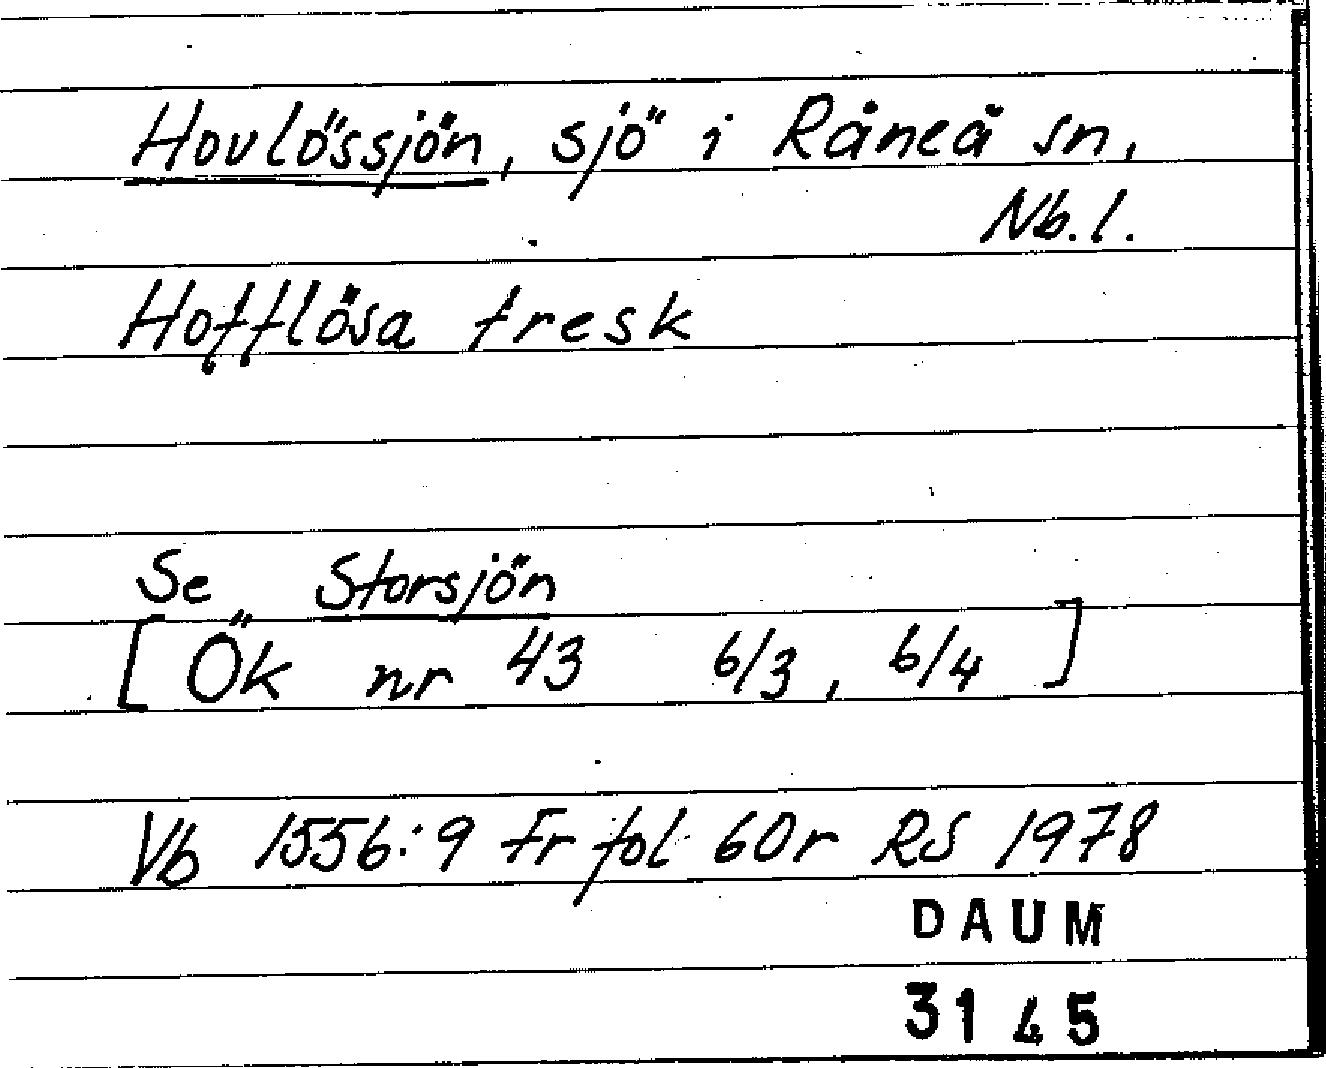 Hovlössjön, sjö i Råneå sn,
Nb.l.
Hofflösa tresk
Se Storsjön
[Ök nr 43 6/3, 6/4]
Vb 1556:9 Fr fol 60r RS 1978
DAUM
3145